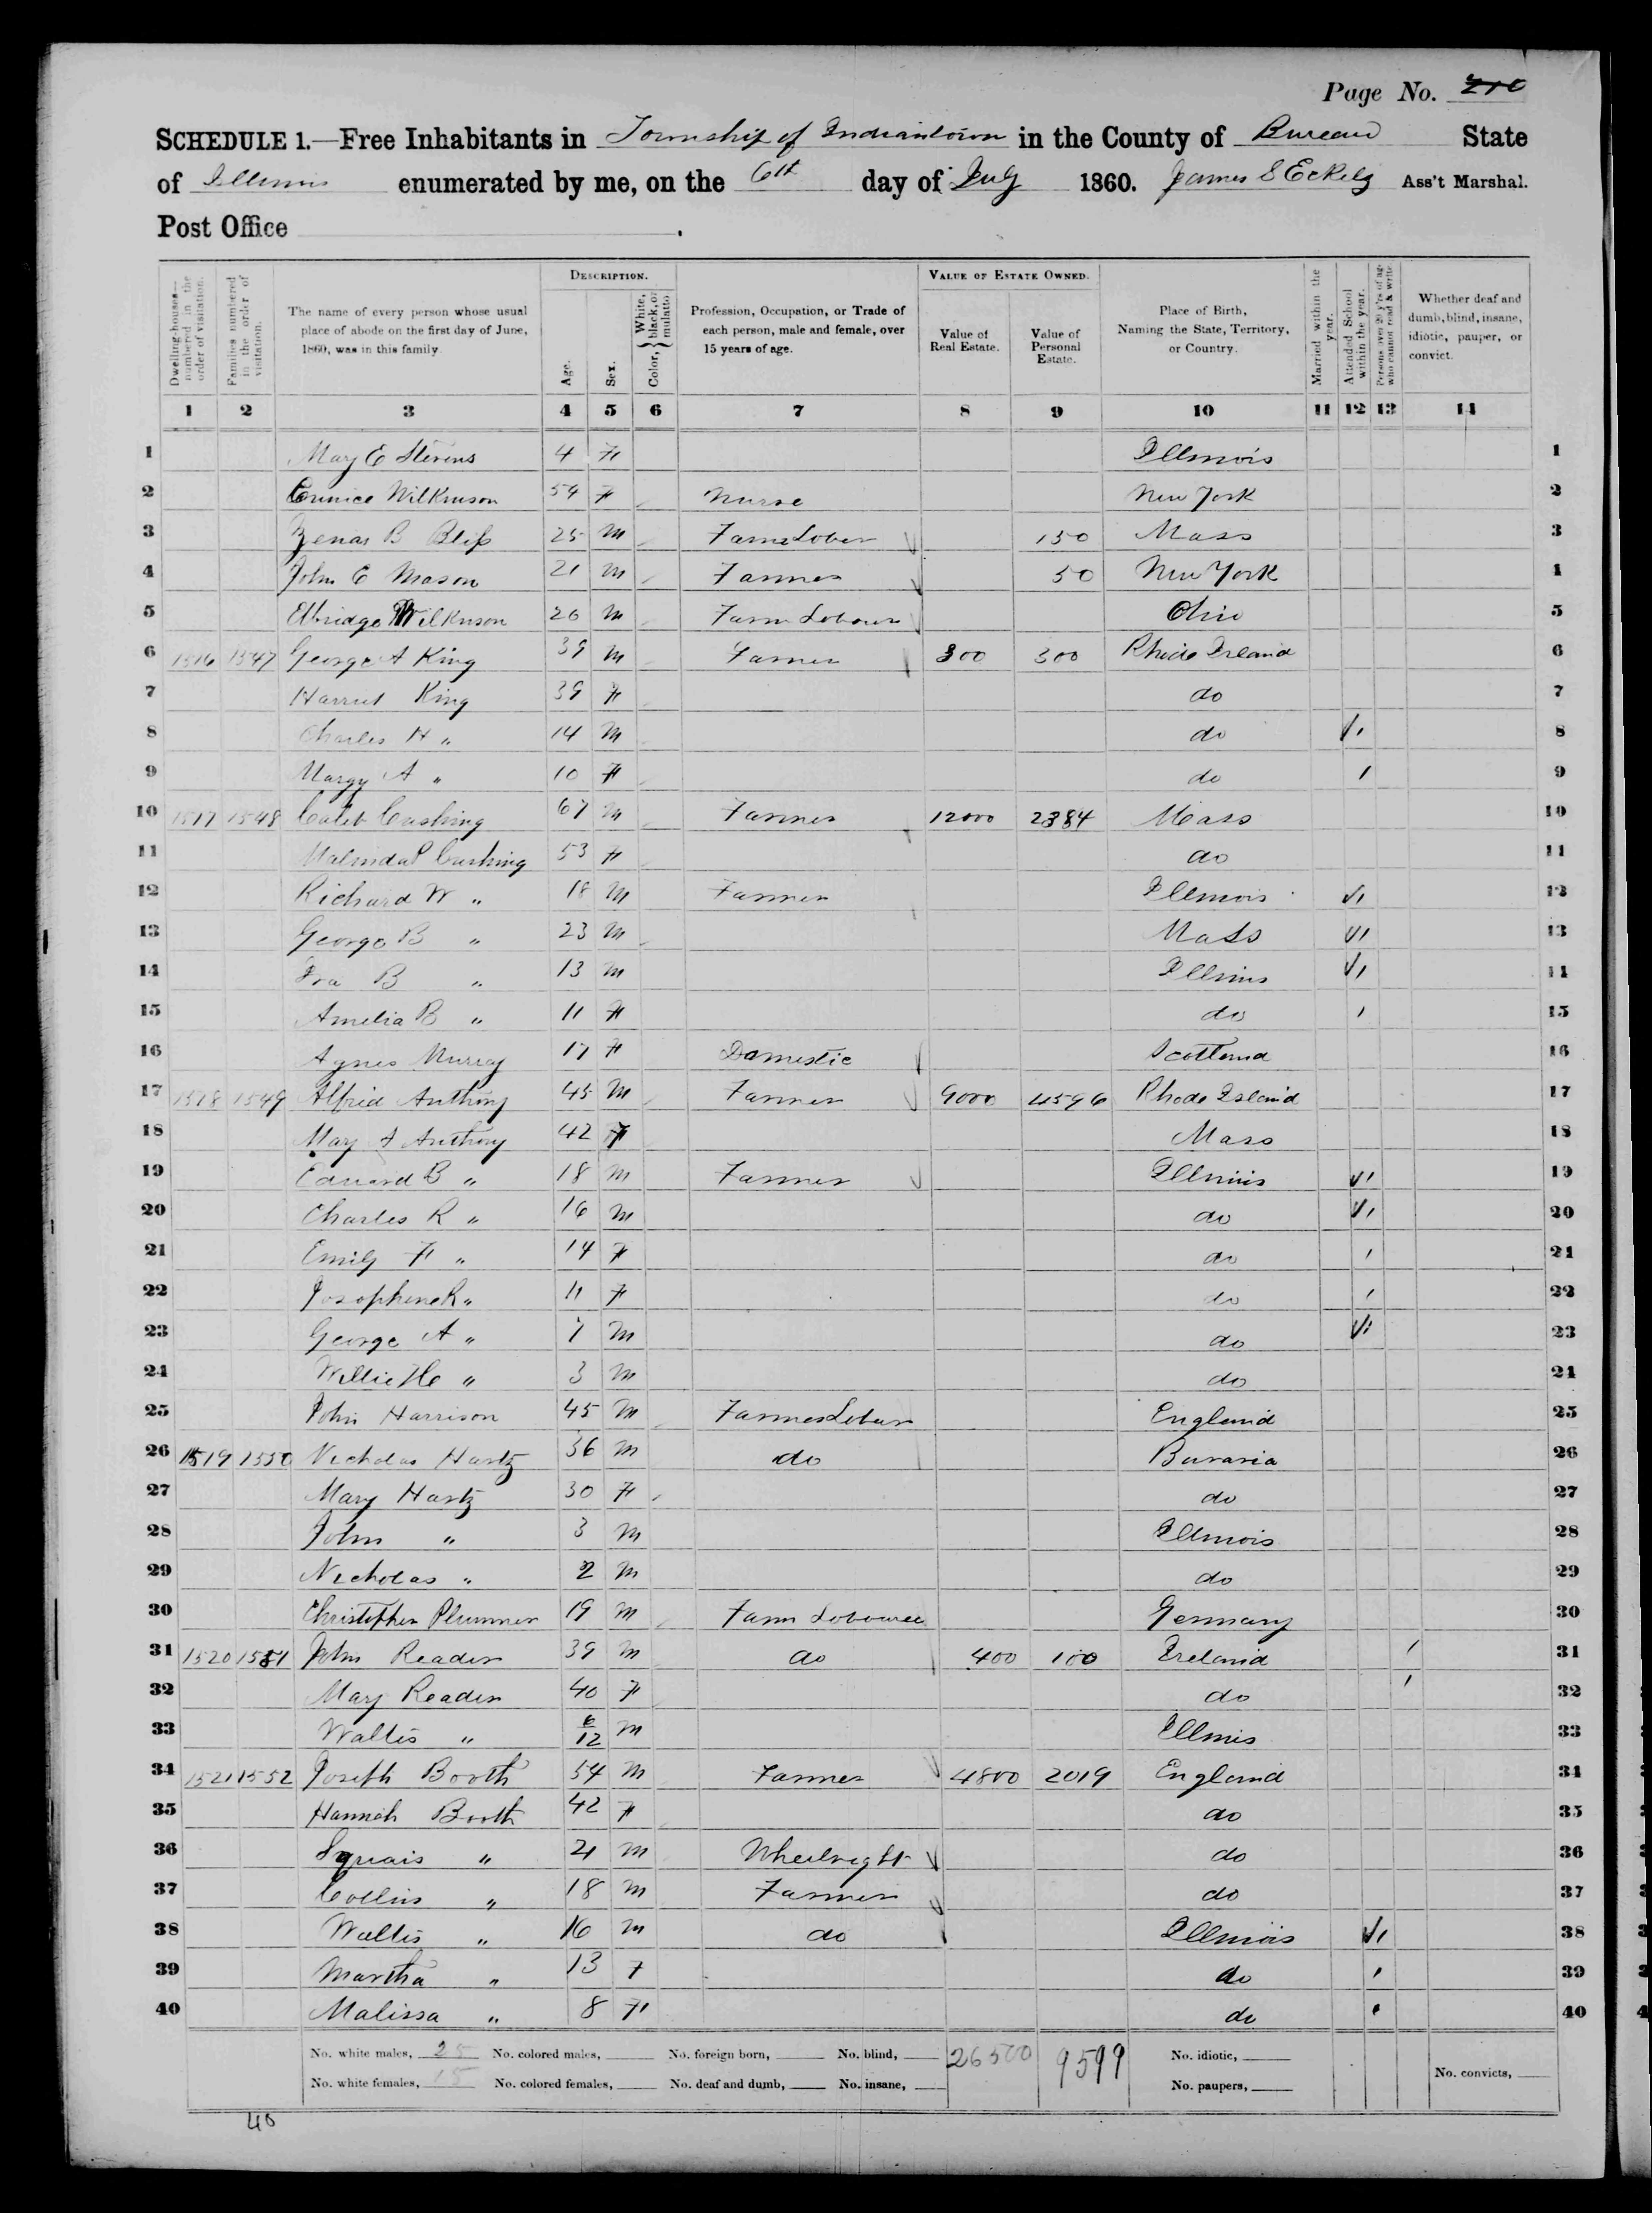 Page No. 210
SCHEDULE 1.—Free Inhabitants in Township of Indiantown in the County of Bureau State
of Illinois enumerated by me, on the 6th day of July 1860. James S Eckels Ass't Marshal.
Post Office .
Dwelling-houses—numbered in the order of visitation. Families numbered in the order of visitation. The name of every person whose usual place of abode on the first day of June, 1860, was in this family. DESCRIPTION. Age. Sex. Color, White, black, or mulatto. Profession, Occupation, or Trade of each person, male and female, over 15 years of age. VALUE OF ESTATE OWNED. Value of Real Estate. Value of Personal Estate. Place of Birth, Naming the State, Territory, or Country. Married within the year. Attended School within the year. Persons over 20 y'rs of age who cannot read & write. Whether deaf and dumb, blind, insane, idiotic, pauper, or convict.
1 2 3 4 5 6 7 8 9 10 11 12 13 14
1 Mary E Stevens 4 F Illinois 1
2 Eunice Wilkinson 54 F Nurse New York 2
3 Zenas B Bliss 25 M Farm Labor 150 Mass 3
4 John E Mason 21 M Farmer 50 New York 4
5 Elbridge Wilkinson 26 M Farm Labourer Ohio 5
6 1516 1547 George A King 39 M Farmer 300 300 Rhode Island 6
7 Harriet King 39 F do 7
8 Charles H " 14 M do 1 8
9 Margy A " 10 F do 1 9
10 1517 1548 Caleb Cushing 67 M Farmer 12000 2384 Mass 10
11 Malinda P Cushing 53 F do 11
12 Richard W " 18 M Farmer Illinois 1 12
13 George B " 23 M Mass 1 13
14 Ira B " 13 M Illinois 1 14
15 Amelia B " 11 F do 1 15
16 Agnes Murray 17 F Domestic Scotland 16
17 1518 1549 Alfred Anthony 45 M Farmer 9000 4596 Rhode Island 17
18 Mary A Anthony 42 F Mass 18
19 Edward B " 18 M Farmer Illinois 1 19
20 Charles R " 16 M do 1 20
21 Emily F " 14 F do 1 21
22 Josephine R " 11 F do 1 22
23 George A " 7 M do 1 23
24 Willie H " 3 M do 24
25 John Harrison 45 M Farmer Labor England 25
26 1519 1550 Nicholas Hartz 36 M do Bavaria 26
27 Mary Hartz 30 F do 27
28 John " 3 M Illinois 28
29 Nicholas " 2 M do 29
30 Christopher Plummer 19 M Farm Labourer Germany 30
31 1520 1551 John Reader 39 M do 400 100 Ireland 1 31
32 Mary Reader 40 F do 1 32
33 Wallis " 6/12 M Illinois 33
34 1521 1552 Joseph Booth 54 M Farmer 4800 2019 England 34
35 Hannah Booth 42 F do 35
36 Squais " 21 M Wheelright do 36
37 Collins " 18 M Farmer do 37
38 Wallis " 16 M do Illinois 1 38
39 Martha " 13 F do 1 39
40 Malissa " 8 F do 1 40
No. white males, 25 No. colored males, No. foreign born, No. blind, 26500 9599 No. idiotic,
No. white females, 15 No. colored females, No. deaf and dumb, No. insane, No. paupers, No. convicts,
40